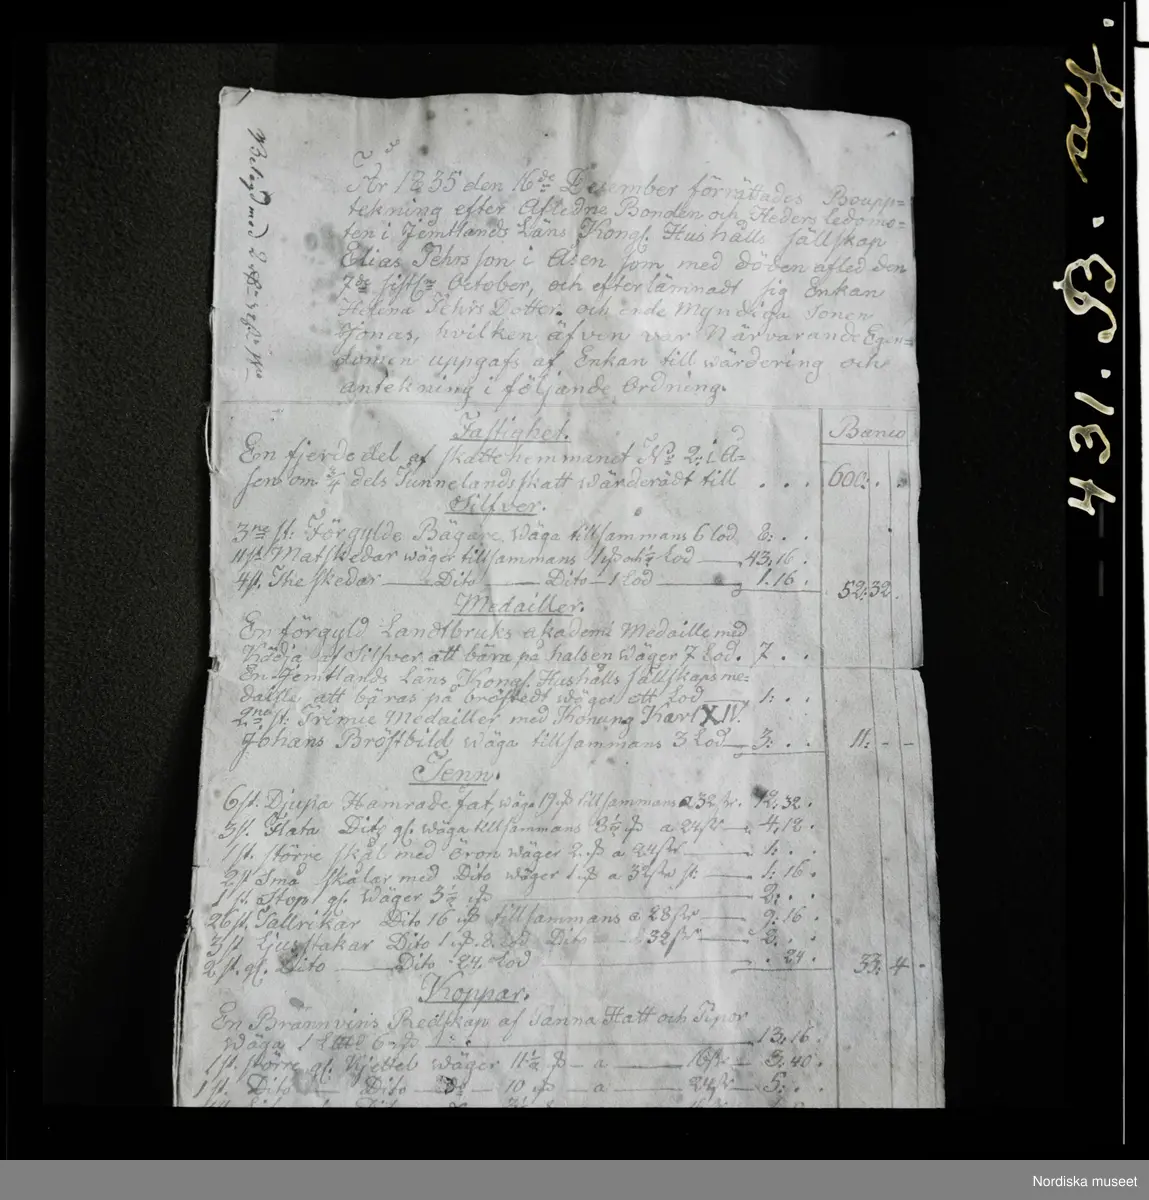 År 1835 den 16de December förrättades Boupp=
tekning efter Afledne Bonden och Hedersledomo=
ten i Jemtlands Läns Kongl. Hushålls Sällskap
Elias Pehrsson i Åsen som med döden afled den
7de sistl. October, och efterlämnadt sig Enkan
Helena Pehrs Dotter och ende Myndiga Sonen
Jonas, hvilken äfven var Närvarande Egen=
domen uppgafs af Enkan till wärdering och
antekning i följande Ordning.
Banco
Fastighet.
En fjerdedel af skattehemmanet No 2: i Å=
sen om 3/4 dels Tunnelandsskatt wärderadt till . . . 600: . .
Silfver.
3ne st: Förgylde Bägare wäga tillsammans 6 lod 8: . .
11 st. Matskedar wäger tillsammans Lod 43. 16.
4 st. The skedar Dito Dito 1 Lod 1. 16. 52: 32
Medailler.
En förgyld Landtbruks akademi Medaille med
Kädja af Silfver att bära på halsen wäger 7 Lod. 7 . .
En Jemtlands Läns Kongl. Hushålls Sällskaps me=
daille att bäras på bröstedt wäger ett Lod 1: . .
2ne st: Premie Medailler med Konung Karl XIV.
Johans Bröstbild wäga tillsammans 3 Lod 3: . . 11: - -
Tenn.
6 st. Djupa Hamrade fat, wäga 19 ℔ tillsammans a 32 sk. 12. 32.
3 st. Flata Dito gl. wäga tillsammans 8 1/2 ℔ a 24 sk 4. 12.
1 st. större skål med öron wäger 2 ℔ a 24 sk 1: .
2 st små skålar med Dito wäger 1 ℔ a 32 sk st: 1: 16.
1 st. Stop gl. wäger 3 1/2 ℔ 2: . .
26 st. Tallrikar Dito 16 ℔ tillsammans a 28 sk 9: 16.
3 st Ljusstakar Dito 1 ℔ 8 Lod Dito 32 sk 2. . .
2 st. gl. Dito Dito 24. Lod . 24. 33. 4.
Koppar.
En Brännvins Redskap af Panna Hatt och Pipor
wäga 1 6 ℔ 13. 16.
1 st. större gl. Kjettel wäger 11 1/2 ℔ a 16 sk 3. 40.
1 st. Dito Do 10 ℔ a 24 sk 5: . .
431. B. ay.
Nordiska museet